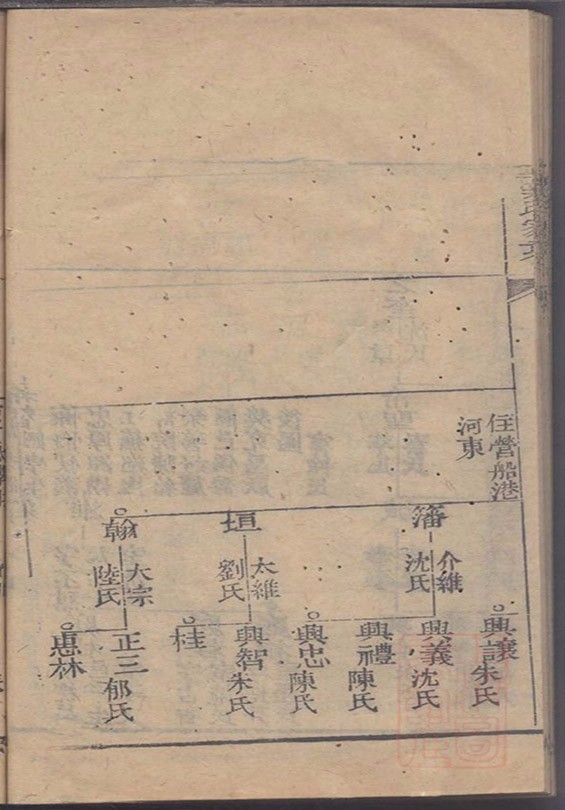 住營船港
河東
藩
介維
沈氏
垣
大維
劉氏
翰
大宗
陸氏
興讓朱氏
興義沈氏
興禮陳氏
興忠陳氏
興智朱氏
桂
正三郁氏
惠林